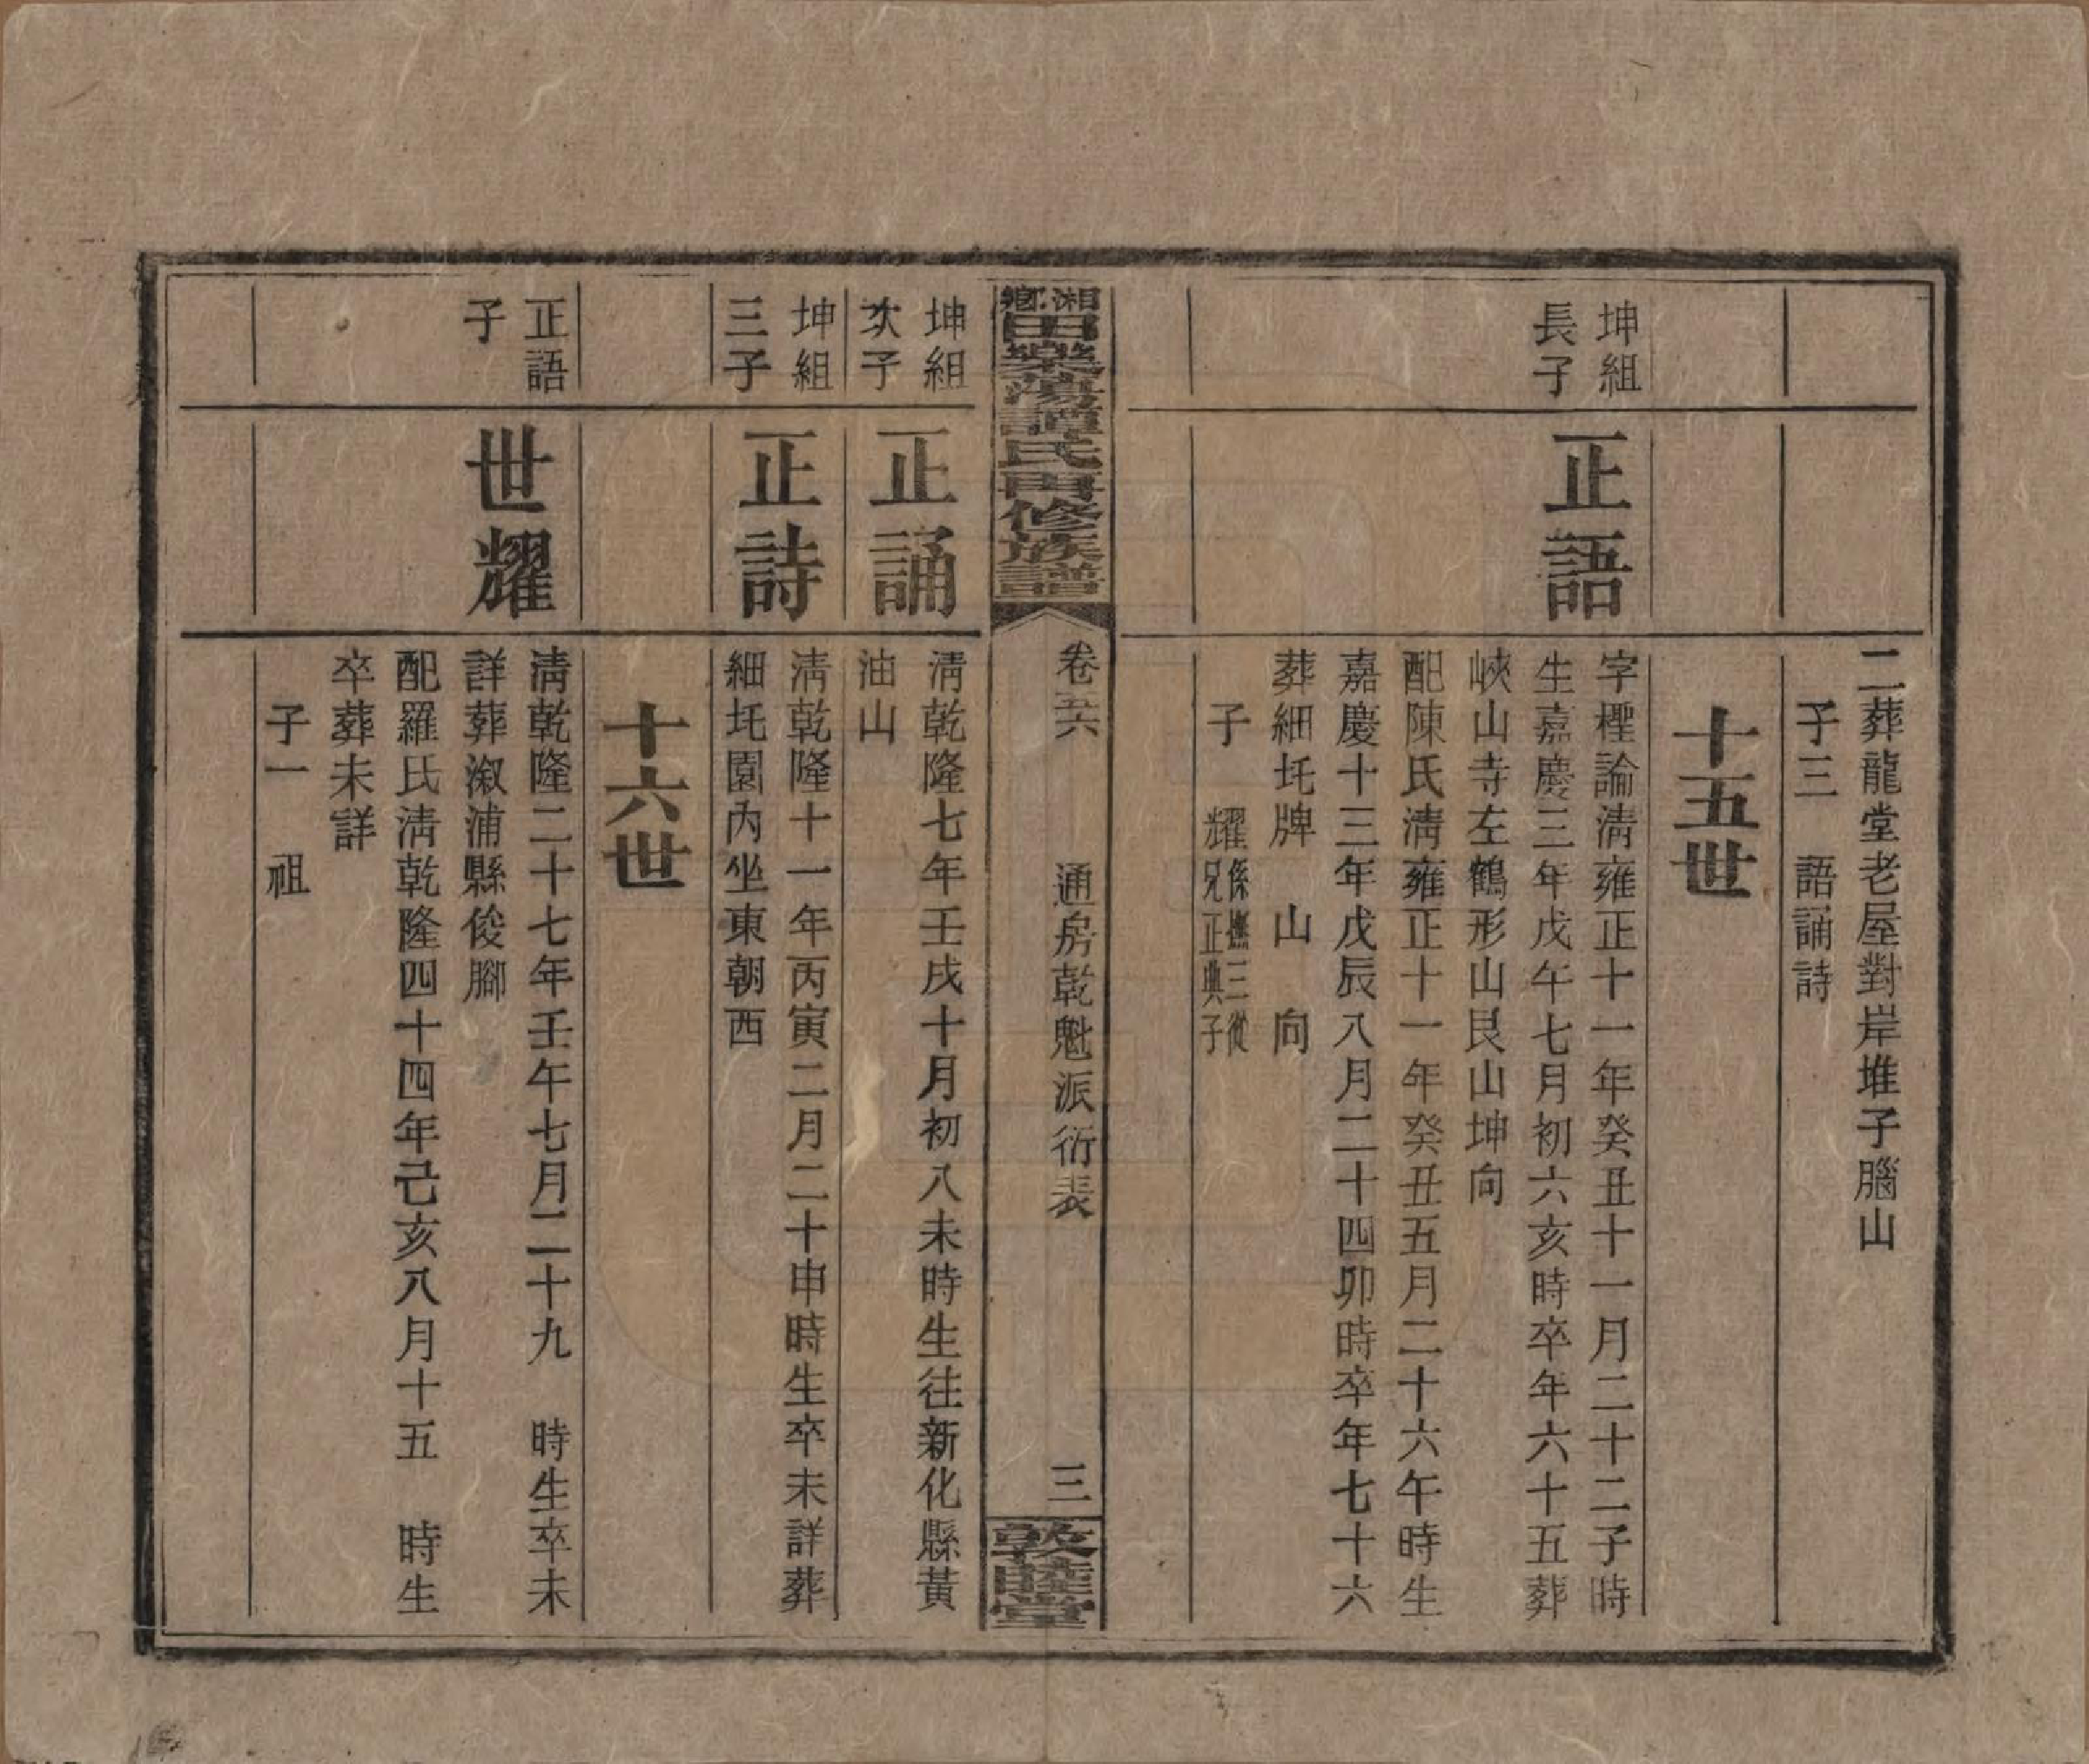 二葬龍堂老屋對岸堆子腦山
子三　語誦詩
十五世
坤組
長子
正語
字桱論淸雍正十一年癸丑十一月二十二子時
生嘉慶三年戊午七月初六亥時卒年六十五葬
峽山寺左鶴形山艮山坤向
配陳氏淸雍正十一年癸丑五月二十六午時生
嘉慶十三年戊辰八月二十四卯時卒年七十六
葬細圫牌　山　向
子　耀係撫三從
兄正典子
湘鄉田樂蕩譚氏再修族譜
卷五六　通房乾魁派衍表　三
敦睦堂
坤組
次子
正誦
淸乾隆七年壬戌十月初八未時生往新化縣黃
油山
坤組
三子
正詩
淸乾隆十一年丙寅二月二十申時生卒未詳葬
細圫園內坐東朝西
十六世
正語
子
世耀
淸乾隆二十七年壬午七月二十九　時生卒未
詳葬溆浦縣俊腳
配羅氏淸乾隆四十四年己亥八月十五　時生
卒葬未詳
子一　祖